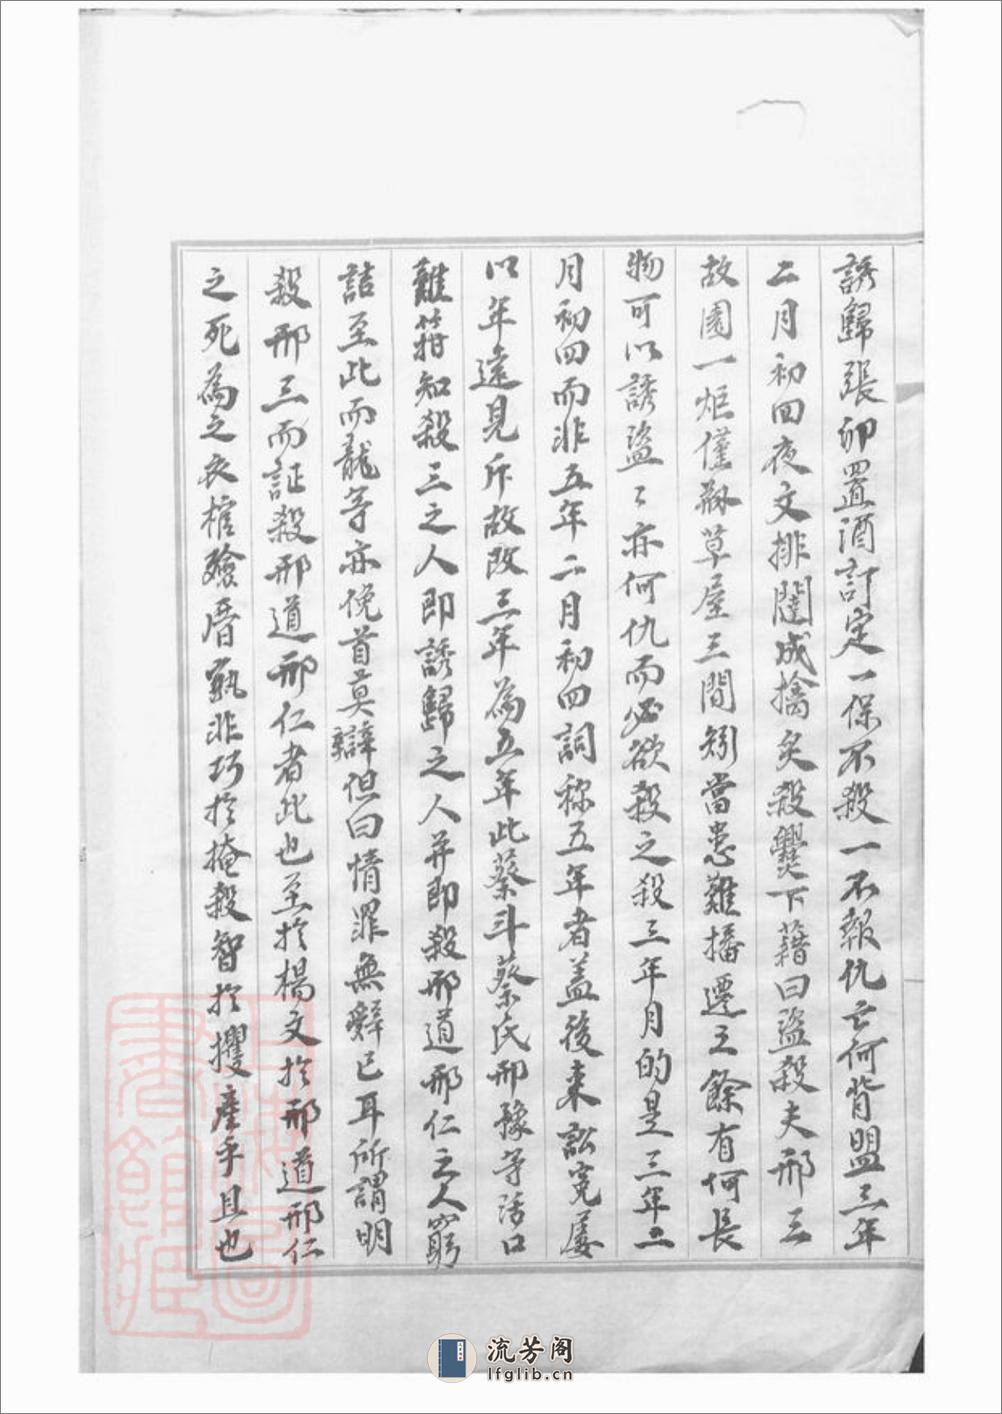 誘歸張卯置酒訂定一保不殺一不報仇亡何背盟三年
二月初四夜文排闥成擒炙殺爨下藉曰盜殺夫邢三
故園一炬僅剩草屋三間矧當患難播遷之餘有何長
物可以誘盜〻亦何仇而必欲殺之殺三年月的是三年二
月初四而非五年二月初四詞称五年者蓋後来訟冤屢
以年遠見斥故改三年為五年此蔡斗蔡氏邢豫等活口
難箝知殺三之人即誘歸之人并即殺邢道邢仁之人窮
詰至此而龍等亦俛首莫辯但曰情罪無辭已耳所謂明
殺邢三而証殺邢道邢仁者此也至於楊文於邢道邢仁
之死為之衣棺殮厝孰非巧於掩殺智於攫產乎且也
上海圖書館藏
流芳阁
lfglib.cn